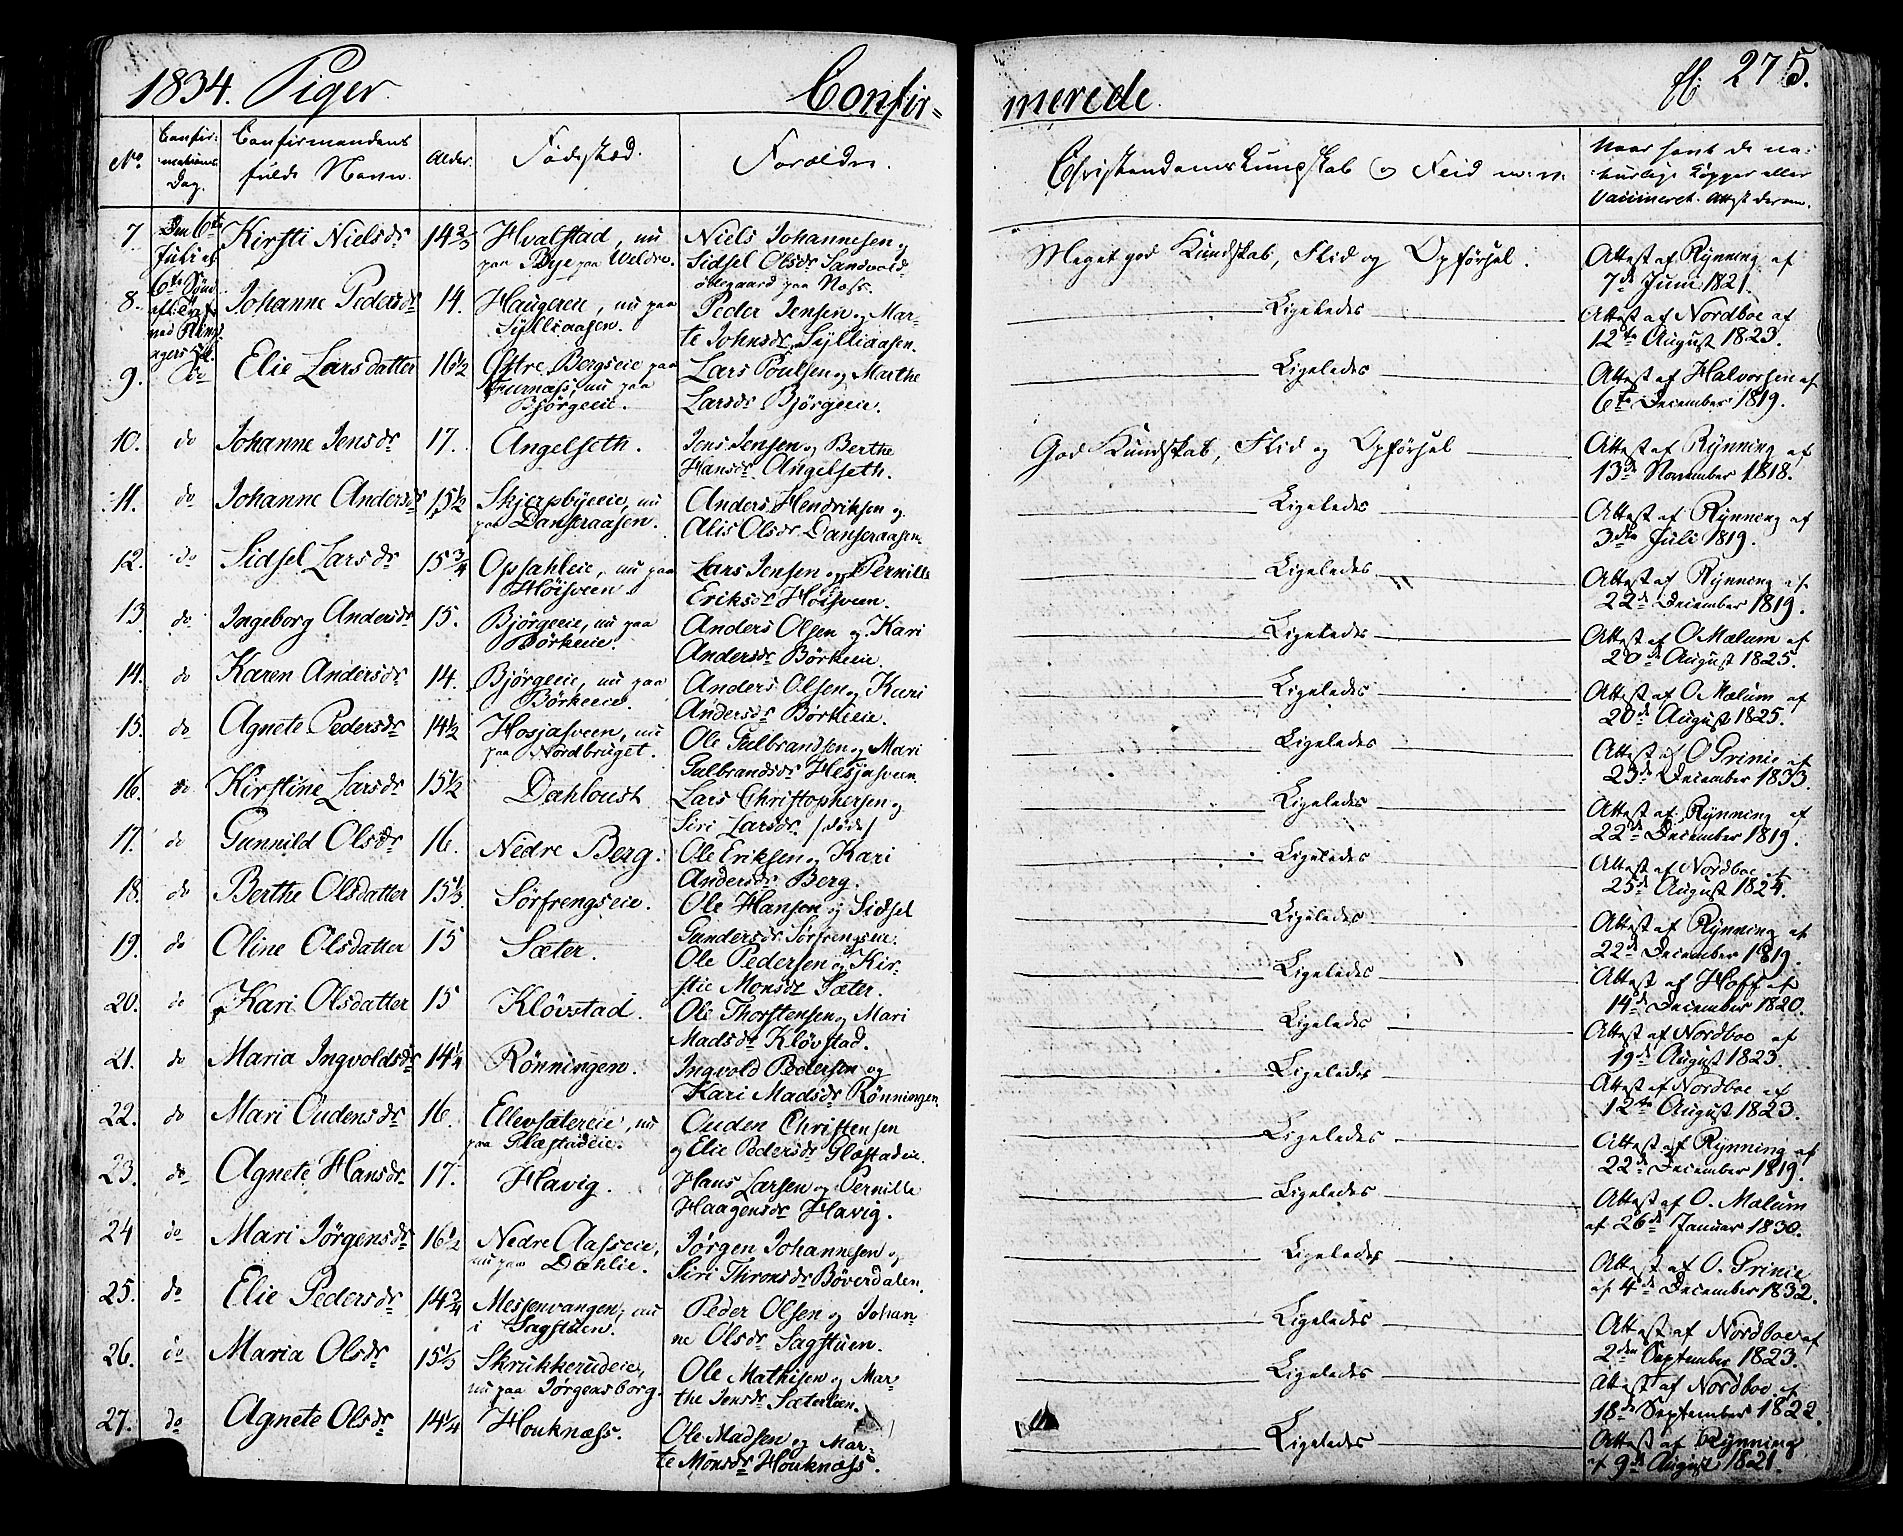 1834. Piger. Confir-
merede. 275.
No.
Confir-
mations
Dag.
Confirmandens
fulde Navn.
Alder.
Fødested.
Forældre
Christendomskundskab og Flid m. v.
Naar havt de na-
turlige Kopper eller
Vaccineret. Attest derom.
7.
Den 6te
Juli
Kirsti Nielsdr
14 2/3
Hvalstad, nu
paa Bye paa Veldre.
Niels Johannesen og
Sidsel Olsdr Sandvold,
østegaard paa Næss.
Meget god Kundskab, Flid og Opførsel.
Attest af Rynning af
7de Juni 1821.
8.
Johanne Pedersdr
14.
Haugeeie, nu paa
Sylliaasen.
Peder Jensen og Mar-
te Johnsdr Sylliaasen.
Ligeledes
Attest af Nordboe af
12te August 1823.
9.
do
Elie Larsdatter
16 1/2
Østre Bergseie paa
Furnæss, nu paa
Bjørgeeie.
Lars Poulsen og Marthe
Larsdr Bjørgeeie.
Ligeledes
Attest af Halvorsen af
6te December 1819.
10.
do
Johanne Jensdr
17.
Angelseth.
Jens Jensen og Berthe
Hansdr Angelseth.
God Kundskab, Flid og Opførsel
Attest af Rynning af
13de November 1818.
11.
do
Johanne Andersdr
15 1/2
Skjerpbyeeie, nu
paa Danseraasen.
Anders Hendriksen og
Alis Olsdr Danseraasen.
Ligeledes
Attest af Rynning af
3die Juli 1819.
12.
do
Sidsel Larsdr
15 3/4
Opsahleie, nu paa
Høisveen.
Lars Jensen og Pernille
Eriksdr Høisveen.
Ligeledes
Attest af Rynning af
22de December 1819.
13.
do
Ingeborg Andersdr
15.
Bjørgeeie, nu paa
Børkeeie.
Anders Olsen og Kari
Andersdr Børkeeie.
Ligeledes
Attest af O Mælum af
20de August 1825.
14.
do
Karen Andersdr
14.
Bjørgeeie, nu paa
Børkeeie.
Anders Olsen og Kari
Andersdr Børkeeie.
Ligeledes
Attest af O. Mælum af
20de August 1825.
15.
do
Agnete Pedersdr
14 1/2
Hosjasveen, nu
paa Nordbruget.
Ole Gulbrandsen og Mari
Gulbrandsdr Hesjasveen.
Ligeledes
Attest af O Grinie af
23de December 1833.
16.
do
Kirstine Larsdr
15 1/2
Dahloust
Lars Christophersen og
Siri Larsdr. (døde)
Ligeledes
Attest af Rynning af
22de December 1819.
17.
do
Gunnild Olsdr
16.
Nedre Berg.
Ole Eriksen og Kari
Andersdr Berg.
Ligeledes
Attest af Nordboe af
25de August 1824.
18.
do
Berthe Olsdatter
15 1/3.
Sørfrengseie.
Ole Hansen og Sidsel
Gundersdr Sørfrengseie.
Ligeledes
Attest af Rynning af
22de December 1819.
19.
do
Oline Olsdatter
15
Sæter.
Ole Pedersen og Kir-
stie Monsdr Sæter.
Ligeledes
Attest af Hoff af
14de December 1820.
20.
do
Kari Olsdatter
15
Kløvstad.
Ole Thorstensen og Mari
Madsdr Kløvstad.
Ligeledes
Attest af Nordboe af
19de August 1823.
21.
do
Maria Ingvoldsdr
14 1/4
Rønningen.
Ingvold Pedersen og
Kari Madsdr Rønningen.
Ligeledes
Attest af Nordboe af
12te August 1823.
22.
do
Mari Oudensdr
16.
Ellevsætereie, nu
paa Glæstadeie.
Ouden Christensen
og Elie Pedersdr Glæstadeie.
Ligeledes
Attest af Rynning af
22de December 1819.
23.
do
Agnete Hansdr
17.
Havig.
Hans Larsen og Pernille
Haagensdr Havig.
Ligeledes
Attest af O. Mælum
af 26de Januar 1830.
24
do
Mari Jørgensdr
16 1/2
Nedre Aasseie,
nu paa Dahlie.
Jørgen Johannesen og
Siri Thronsdr Bøverdalen.
Ligeledes
Attest af O. Grinie
af 4de December 1832.
25.
do
Elie Pedersdr
14 3/4
Messenvangen, nu
i Sagstuen.
Peder Olsen og Johan-
ne Olsdr Sagstuen.
Ligeledes
Attest af Nordboe af
2den September 1823.
26.
do
Maria Olsdr
15 1/3
Skrukkerudeie,
nu paa Jørgensborg.
Ole Mathisen og Mar-
the Jensdr Sæterlien.
Ligeledes
Attest af Nordboe af
18de September 1822.
27.
do
Agnete Olsdr
14 1/4
Houknæss.
Ole Madsen og Mar-
te Monsdr Houknæss.
Ligeledes
Attest af Rynning
af 9de August 1821.